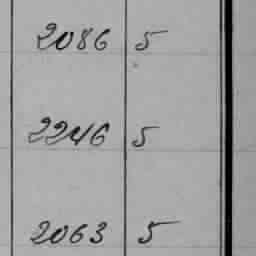 2086 5
2246 5
2063 5